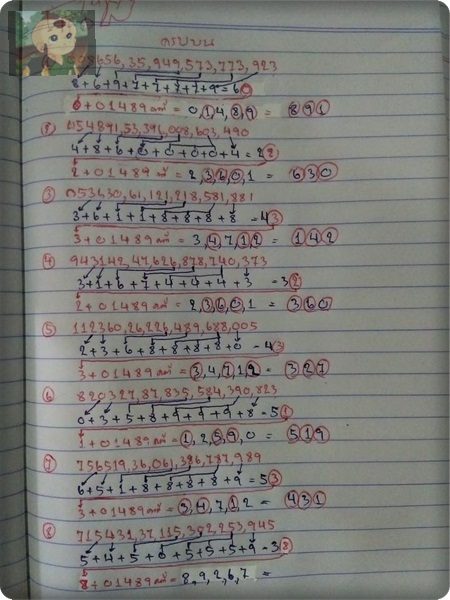 ครบบน
08656,35,949,573,773,923
8+6+9+7+7+7+7+9=60
0+01489คงที่ = 0,1,4,8,9 = 891
② 054891,53,391,008,603,490
4+8+6+0+0+0+0+4=22
2+01489คงที่ = 2,3,6,0,1 = 630
③ 053630,61,121,218,581,881
3+6+1+1+8+8+8+8=43
3+01489คงที่ = 3,4,7,1,2 = 142
④ 943142,47,626,878,740,373
3+1+6+7+4+4+4+3=32
2+01489คงที่ = 2,3,6,0,1 = 360
⑤ 112360,26,226,489,688,005
2+3+6+8+8+8+8+0=43
3+01489คงที่ = 3,4,7,1,2 = 327
⑥ 820327,87,835,584,390,823
0+3+5+8+9+9+9+8=51
1+01489คงที่ = 1,2,5,9,0 = 519
⑦ 756519,36,061,386,787,989
6+5+1+8+8+8+8+9=53
3+01489คงที่ = 3,4,7,1,2 = 431
⑧ 715431,37,115,352,253,945
5+4+5+0+5+5+5+9=38
8+01489คงที่ = 8,9,2,6,7 =